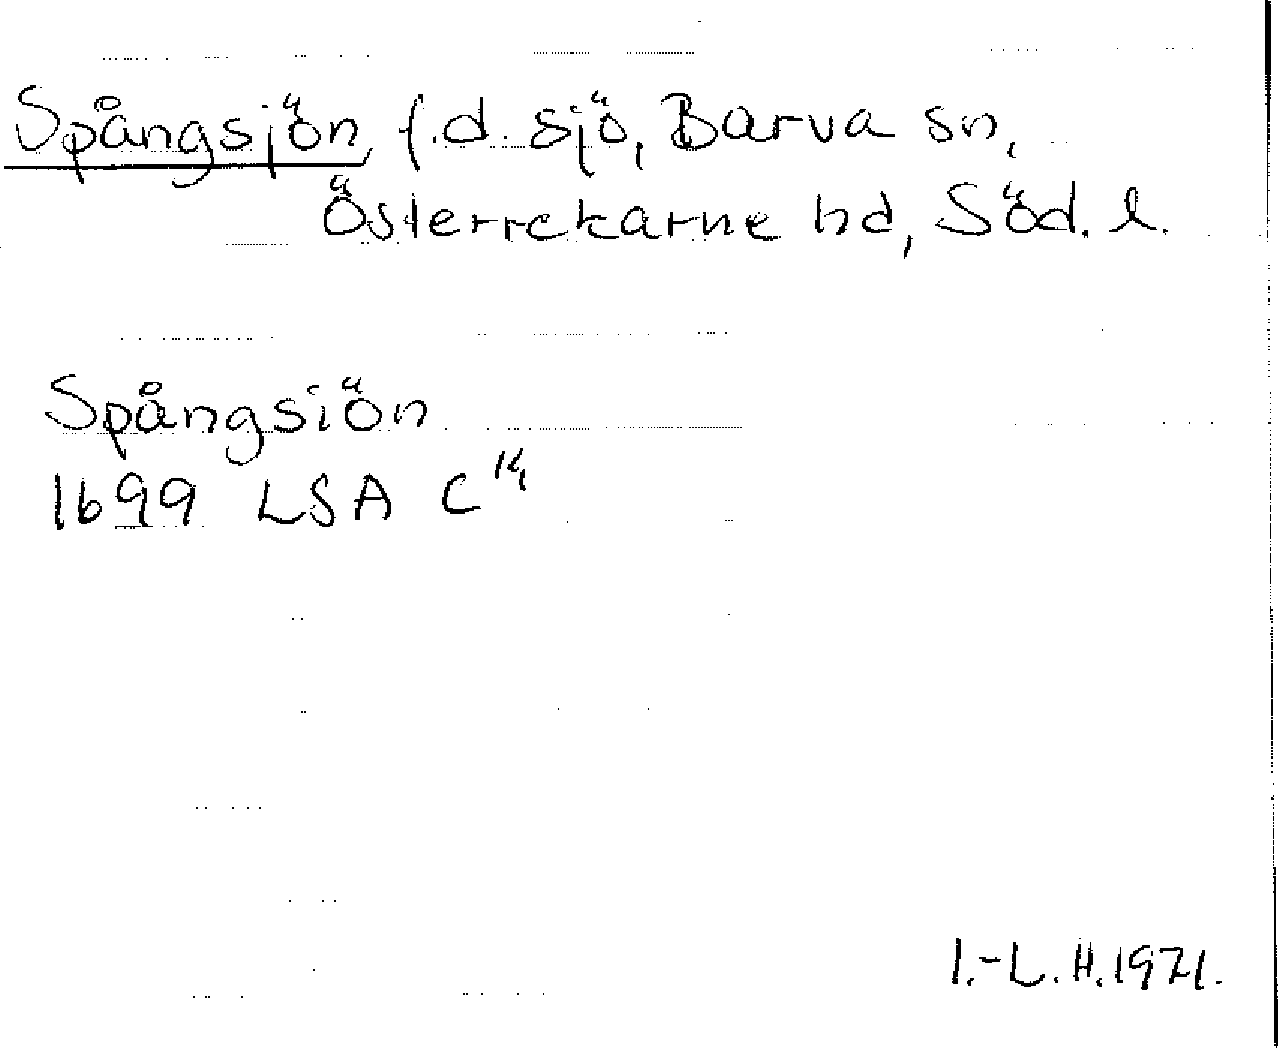 Spångsjön, f.d. sjö, Barva sn,
Österrekarne hd, Söd. l.
Spångsiön
1699 LSA C 14
I.-L. H. 1971.